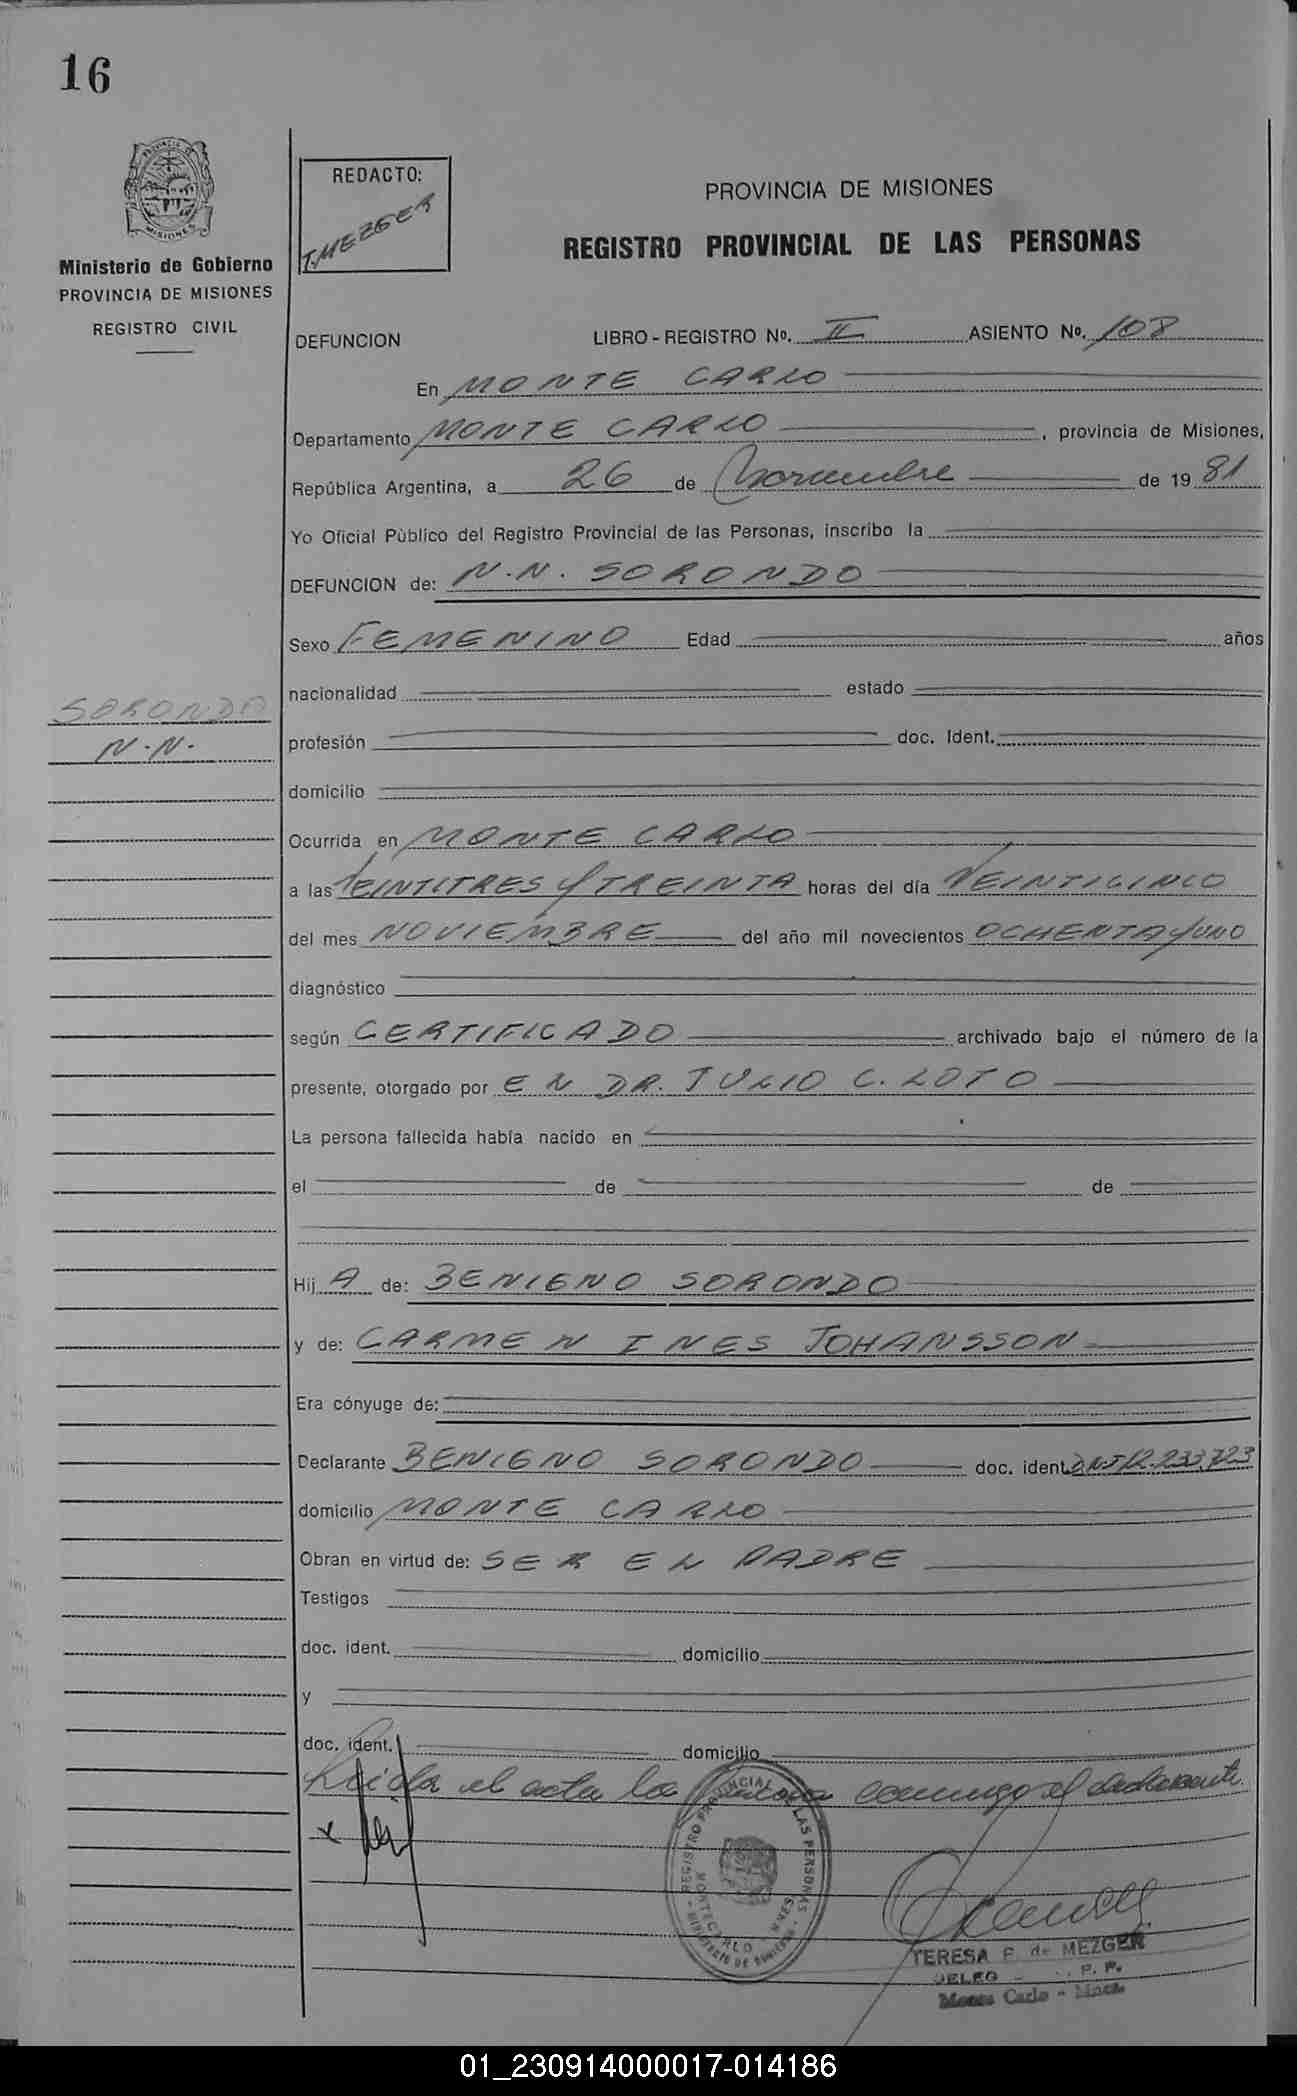 16
PROVINCIA DE
MISIONES
Ministerio de Gobierno
PROVINCIA DE MISIONES
REGISTRO CIVIL
REDACTO:
T. MEZGER
PROVINCIA DE MISIONES
REGISTRO PROVINCIAL DE LAS PERSONAS
DEFUNCION LIBRO - REGISTRO Nº. II ASIENTO Nº. 108
En MONTE CARLO
Departamento MONTE CARLO, provincia de Misiones,
República Argentina, a 26 de Noviembre de 1981
Yo Oficial Público del Registro Provincial de las Personas, inscribo la
DEFUNCION de: N.N. SORONDO
Sexo FEMENINO Edad años
nacionalidad estado
SORONDO
N.N.
profesión doc. Ident.
domicilio
Ocurrida en MONTE CARLO
a las VEINTITRES y TREINTA horas del día VEINTICINCO
del mes NOVIEMBRE del año mil novecientos OCHENTA y UNO
diagnóstico
según CERTIFICADO archivado bajo el número de la
presente, otorgado por EL DR. TULIO C. LOTO
La persona fallecida había nacido en
el de de
Hij A de: BENIGNO SORONDO
y de: CARMEN INES JOHANSSON
Era cónyuge de:
Declarante BENIGNO SORONDO doc. ident. DNI 12.233.723
domicilio MONTE CARLO
Obran en virtud de: SER EL PADRE
Testigos
doc. ident. domicilio
y
doc. ident. domicilio
Leida el acta la conmigo el declarante
x
REGISTRO PROVINCIAL DE LAS PERSONAS
MONTECARLO - MNES
MINISTERIO DE GOBIERNO
TERESA F. de MEZGER
DELEG
Monte Carlo - Mnes.
01_230914000017-014186